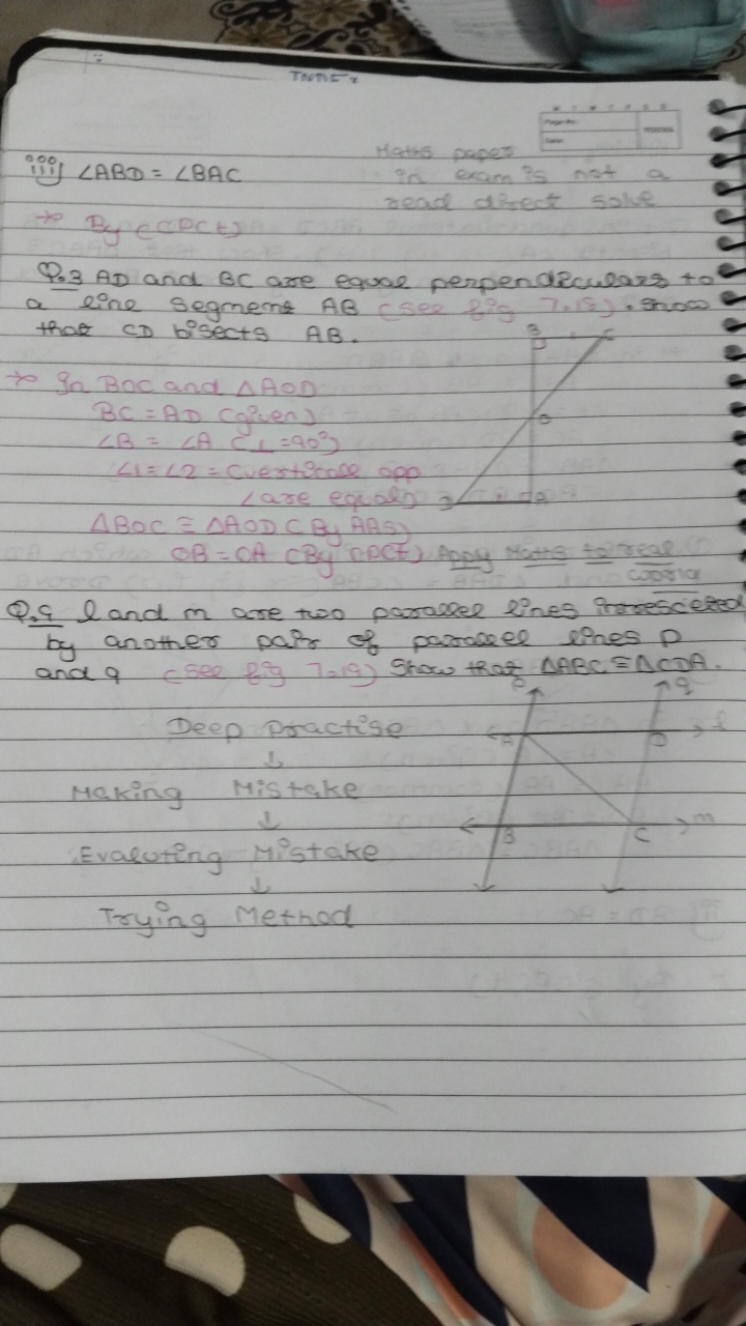 iii) ∠ABD = ∠BAC
Maths paper
in exam is not a
read direct solve
→ By (CPCt)
Q.3 AD and BC are equal perpendiculars to
a line segment AB (see fig 7.18). Show
that CD bisects AB.
→ In BOC and △AOD
BC = AD (given)
∠B = ∠A (⊥ = 90°)
∠1 = ∠2 = (verticall opp
∠are equal)
△BOC ≅ △AOD (By AAS)
OB = OA (By CPCt)
Apply Maths to real
world
B
C
O
D
A
Q.4 l and m are two parallel lines
by another pair of parallel lines p
and q (see fig 7.19) Show that △ABC ≅ △CDA.
Deep Practise
↓
Making Mistake
↓
Evaluting Mistake
↓
Trying Method
P
q
A
D
l
B
C
m